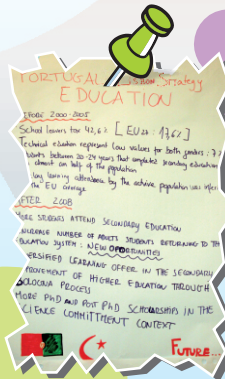 PORTUGAL LISBON Strategy
EDUCATION
BEFORE 2000-2005
School leavers for 42,6% [EU 25: 17,6%]
Technical education represent low values for both genders: 7,
between 20-24 years that completed secondary education
almost on half of the population
long learning attendance by the active population was
the EU average
AFTER 2008
MORE STUDENTS ATTEND SECONDARY EDUCATION
NUMBER OF ADULTS STUDENTS RETURNING TO THE
EDUCATION SYSTEM: NEW OPPORTUNITIES
DIVERSIFIED LEARNING OFFER IN THE SECONDARY
IMPROVEMENT OF HIGHER EDUCATION THROUGH
BOLOGNA PROCESS
MORE PhD AND POST PhD SCHOLARSHIPS IN THE
SCIENCE COMMITTMENT CONTEXT
FUTURE...